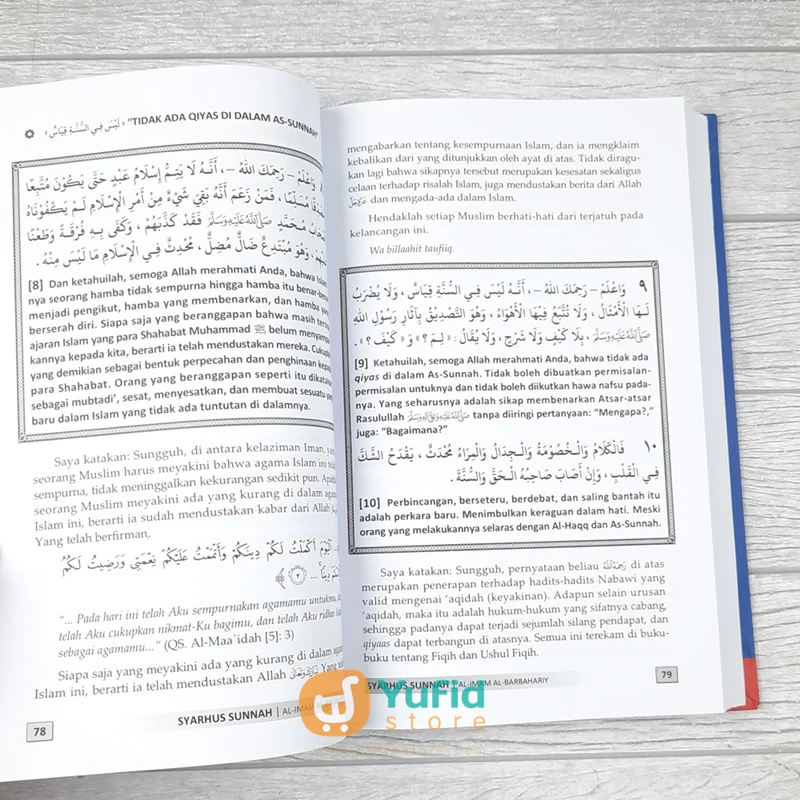 « لَيْسَ فِي السُّنَّةِ قِيَاسٌ » "TIDAK ADA QIYAS DI DALAM AS-SUNNAH"
وَاعْلَمْ – رَحِمَكَ اللهُ –، أَنَّهُ لَا يَتِمُّ إِسْلَامُ عَبْدٍ حَتَّى يَكُوْنَ مُتَّبِعًا
مُسَلِّمًا، فَمَنْ زَعَمَ أَنَّهُ بَقِيَ شَيْءٌ مِنْ أَمْرِ الْإِسْلَامِ لَمْ يَكْفُوْنَاهُ
مُحَمَّدٍ ﷺ فَقَدْ كَذَّبَهُمْ، وَكَفَى بِهِ فُرْقَةً وَطَعْنًا
وَهُوَ مُبْتَدِعٌ ضَالٌّ مُضِلٌّ، مُحْدِثٌ فِي الْإِسْلَامِ مَا لَيْسَ مِنْهُ.
[8] Dan ketahuilah, semoga Allah merahmati Anda, bahwa Islam-
nya seorang hamba tidak sempurna hingga hamba itu benar-benar
menjadi pengikut, hamba yang membenarkan, dan hamba yang
berserah diri. Siapa saja yang beranggapan bahwa masih tersisa
ajaran Islam yang para Shahabat Muhammad ﷺ belum menyampai-
kannya kepada kita, berarti ia telah mendustakan mereka. Cukuplah
yang demikian sebagai bentuk perpecahan dan penghinaan kepada
para Shahabat. Orang yang beranggapan seperti itu dikatakan
sebagai mubtadi', sesat, menyesatkan, dan membuat sesuatu yang
baru dalam Islam yang tidak ada tuntutan di dalamnya.
Saya katakan: Sungguh, di antara kelaziman Iman, yang
seorang Muslim harus meyakini bahwa agama Islam ini telah
sempurna, tidak meninggalkan kekurangan sedikit pun. Apabila
seorang Muslim meyakini ada yang kurang di dalam agama
Islam ini, berarti ia sudah mendustakan kabar dari Allah
Yang telah berfirman,
الْيَوْمَ أَكْمَلْتُ لَكُمْ دِينَكُمْ وَأَتْمَمْتُ عَلَيْكُمْ نِعْمَتِي وَرَضِيتُ لَكُمُ
"... Pada hari ini telah Aku sempurnakan agamamu untukmu,
telah Aku cukupkan nikmat-Ku bagimu, dan telah Aku ridhai
sebagai agamamu..." (QS. Al-Maa`idah [5]: 3)
Siapa saja yang meyakini ada yang kurang di dalam agama
Islam ini, berarti ia telah mendustakan Allah Yang
78
SYARHUS SUNNAH | AL-IMAM
mengabarkan tentang kesempurnaan Islam, dan ia mengklaim
kebalikan dari yang ditunjukkan oleh ayat di atas. Tidak diragu-
kan lagi bahwa sikapnya tersebut merupakan kesesatan sekaligus
celaan terhadap risalah Islam, juga mendustakan berita dari Allah
عَزَّوَجَلَّ dan mengada-ada dalam Islam.
Hendaklah setiap Muslim berhati-hati dari terjatuh pada
kelancangan ini.
Wa billaahit taufiiq.
٩ وَاعْلَمْ – رَحِمَكَ اللهُ –، أَنَّهُ لَيْسَ فِي السُّنَّةِ قِيَاسٌ، وَلَا يُضْرَبُ
لَهَا الْأَمْثَالُ، وَلَا تُتَّبَعُ فِيْهَا الْأَهْوَاءُ، وَهُوَ التَّصْدِيْقُ بِآثَارِ رَسُوْلِ اللهِ
صَلَّى اللهُ عَلَيْهِ وَسَلَّمَ، بِلَا كَيْفٍ وَلَا شَرْحٍ، وَلَا يُقَالُ: « لِمَ؟ » وَ« كَيْفَ؟ ».
[9] Ketahuilah, semoga Allah merahmati Anda, bahwa tidak ada
qiyas di dalam As-Sunnah. Tidak boleh dibuatkan permisalan-
permisalan untuknya dan tidak boleh diikutkan hawa nafsu pada-
nya. Yang seharusnya adalah sikap membenarkan Atsar-atsar
Rasulullah صَلَّى اللهُ عَلَيْهِ وَسَلَّمَ tanpa diiringi pertanyaan: "Mengapa?,"
juga: "Bagaimana?"
١٠ فَالْكَلَامُ وَالْخُصُوْمَةُ وَالْجِدَالُ وَالْمِرَاءُ مُحْدَثٌ، يَقْدَحُ الشَّكَّ
فِي الْقَلْبِ، وَإِنْ أَصَابَ صَاحِبُهُ الْحَقَّ وَالسُّنَّةَ.
[10] Perbincangan, berseteru, berdebat, dan saling bantah itu
adalah perkara baru. Menimbulkan keraguan dalam hati. Meski
orang yang melakukannya selaras dengan Al-Haqq dan As-Sunnah.
Saya katakan: Sungguh, pernyataan beliau رَحِمَهُ اللهُ di atas
merupakan penerapan terhadap hadits-hadits Nabawi yang
valid mengenai 'aqidah (keyakinan). Adapun selain urusan
'aqidah, maka itu adalah hukum-hukum yang sifatnya cabang,
sehingga padanya dapat terjadi sejumlah silang pendapat, dan
qiyaas dapat terbangun di atasnya. Semua ini terekam di buku-
buku tentang Fiqih dan Ushul Fiqih.
SYARHUS SUNNAH | AL-IMAM AL-BARBAHARIY
79
YuFid
store